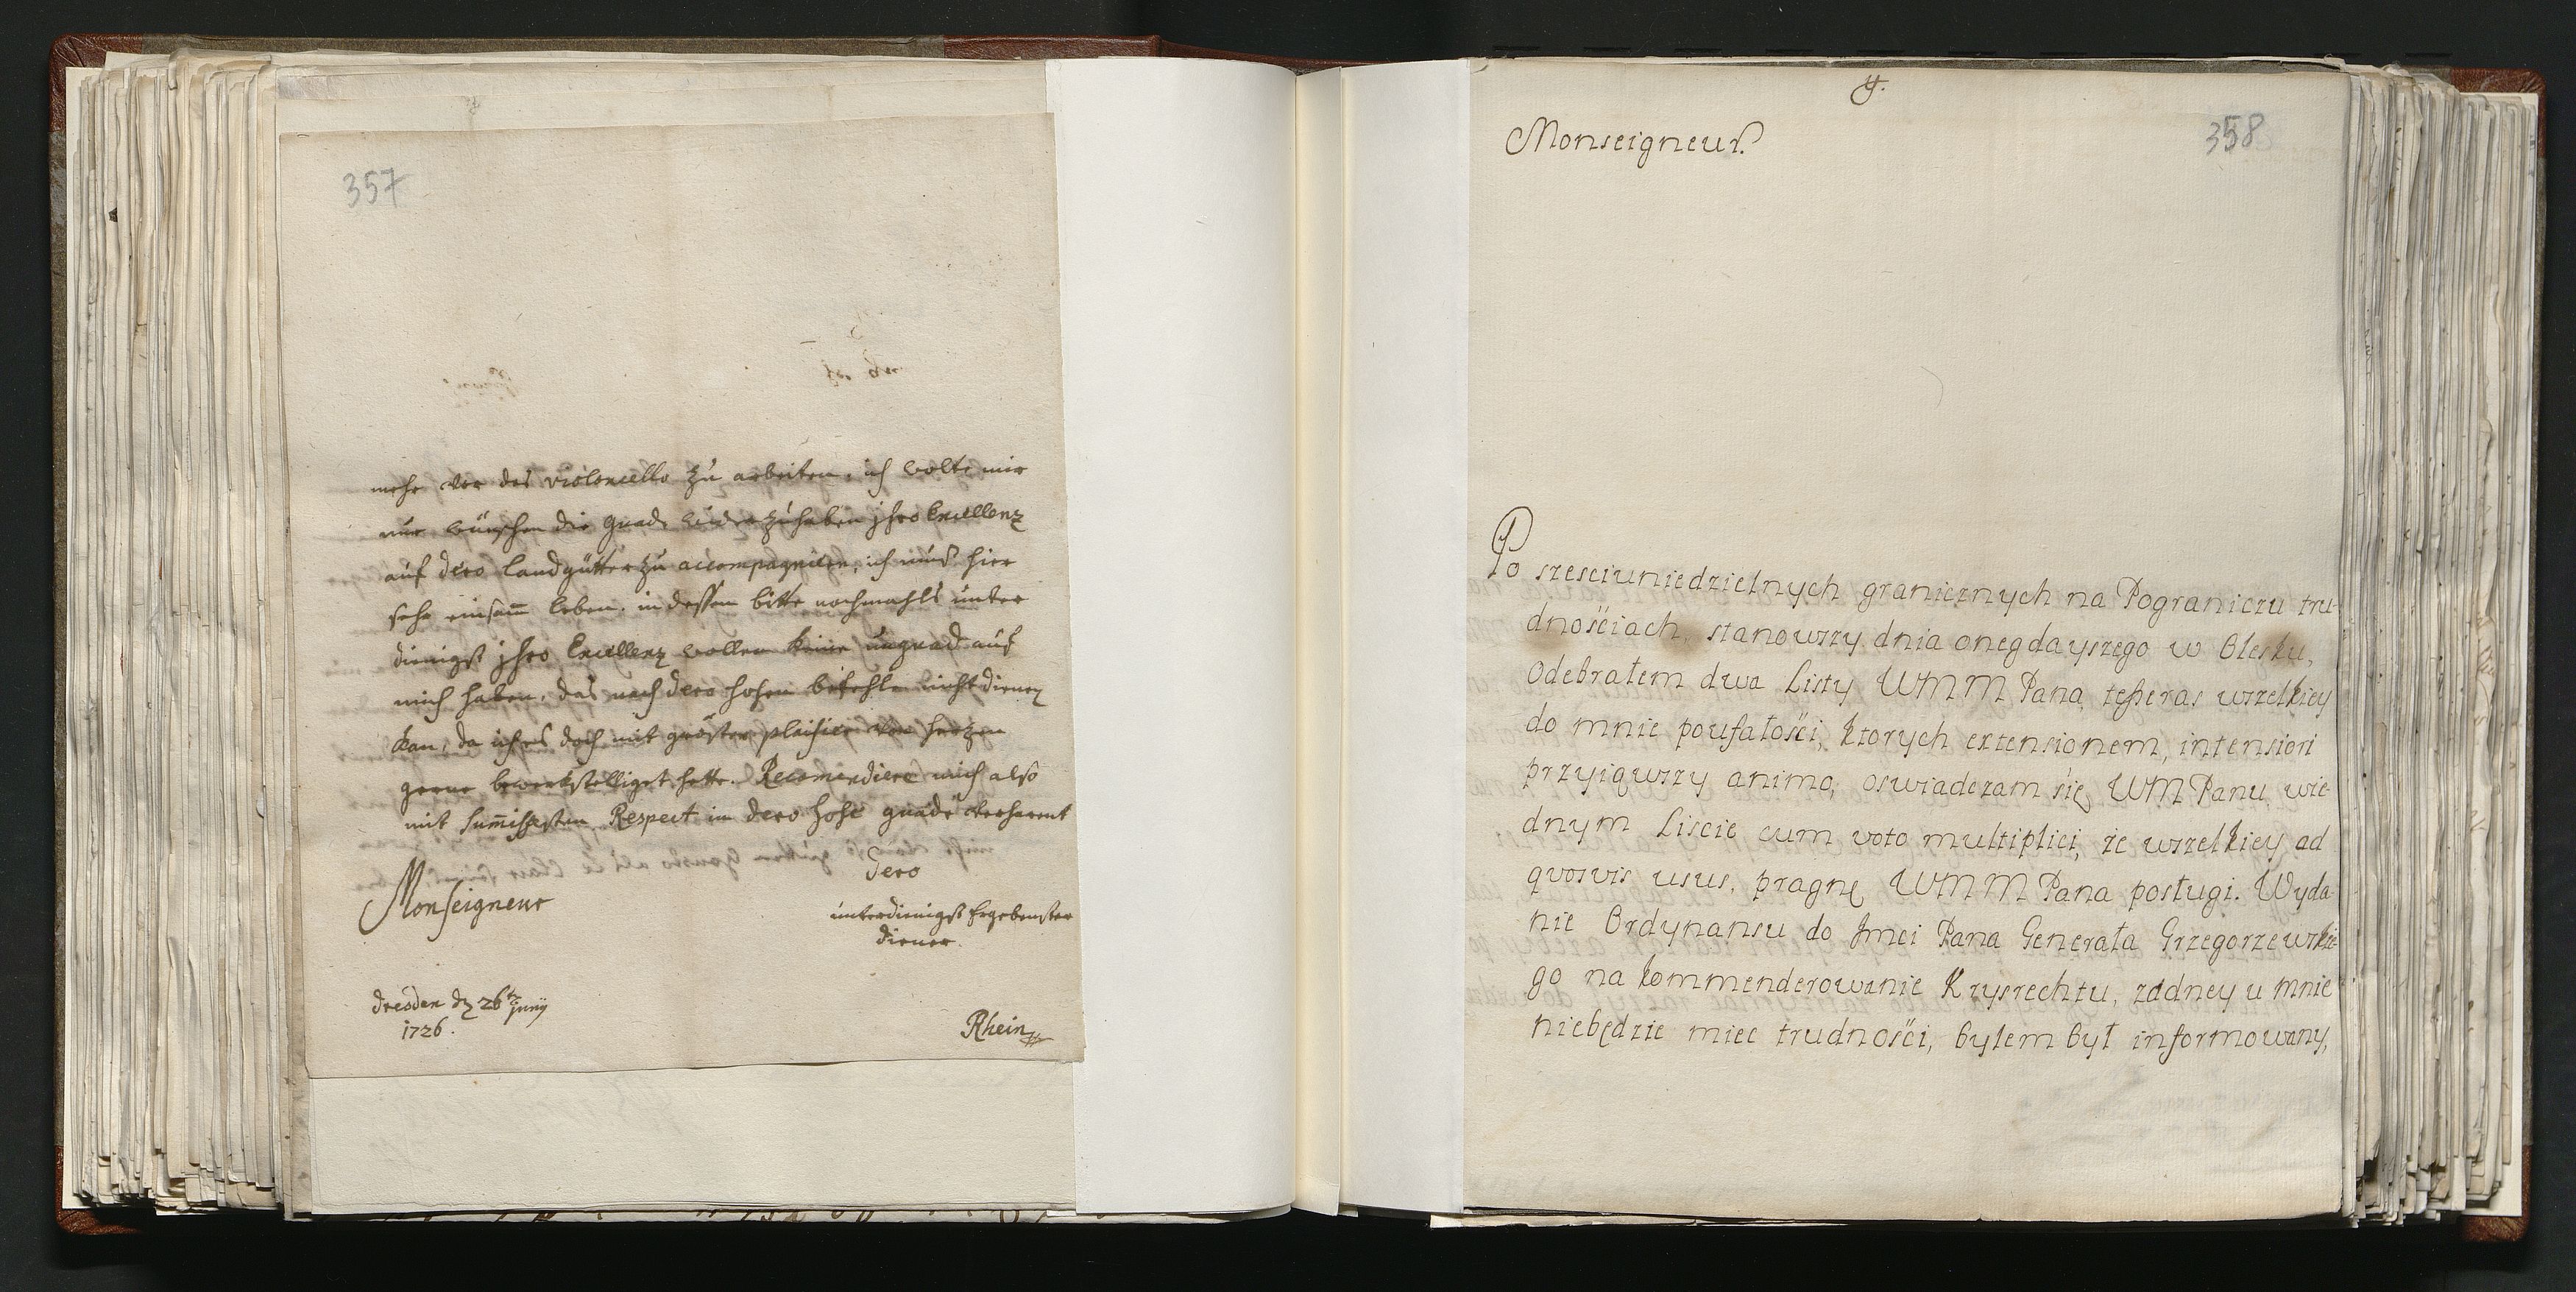 357
mehr vor das violoncello zu arbeiten, ich wolte mir
nur wünschen die gnade wieder zu haben jhro Excellenz
auf dero landgütter zu accompagniren, ich muß hier
sehr einsam̄ leben. in dessen bitte nochmahls unter
dienigst jhro Excellenz wollen keine ungnad auf
mich haben, das nach dero hohen befehle nicht dienen
kan, da ich es doch mit gröster plaisier von herzen
gerne bewerkstelliget hette. Recomendiere mich also
mit sum̄issesten Respect in dero hohe gnade verharent
Monseigneur
Dero
unterdienigst Ergebenster
diener.
dresden dz 26t junij
1726.
Rhein
y.
358
Monseigneur.
Po szesciuniedzielnych granicznych na Pograniczu tru-
dnościach, stanowszy dnia onegdayszego w Olesku,
Odebrałem dwa Listy WMM Pana, tesseras wszelkiey
do mnie poufałości, ktorych extensionem, intensiori
przyiąwszy animo, oswiadczam się WM Panu, wie-
dnym Liscie cum voto multiplici, że wszelkiey ad
qvosvis usus, pragnę WMM Pana posługi. Wyda-
nie Ordynansu do Jmci Pana Generała Grzegorzewskie-
go na kommenderowanie Krysrechtu, zadney u mnie
niebędzie miec trudności, bylem był informowany,